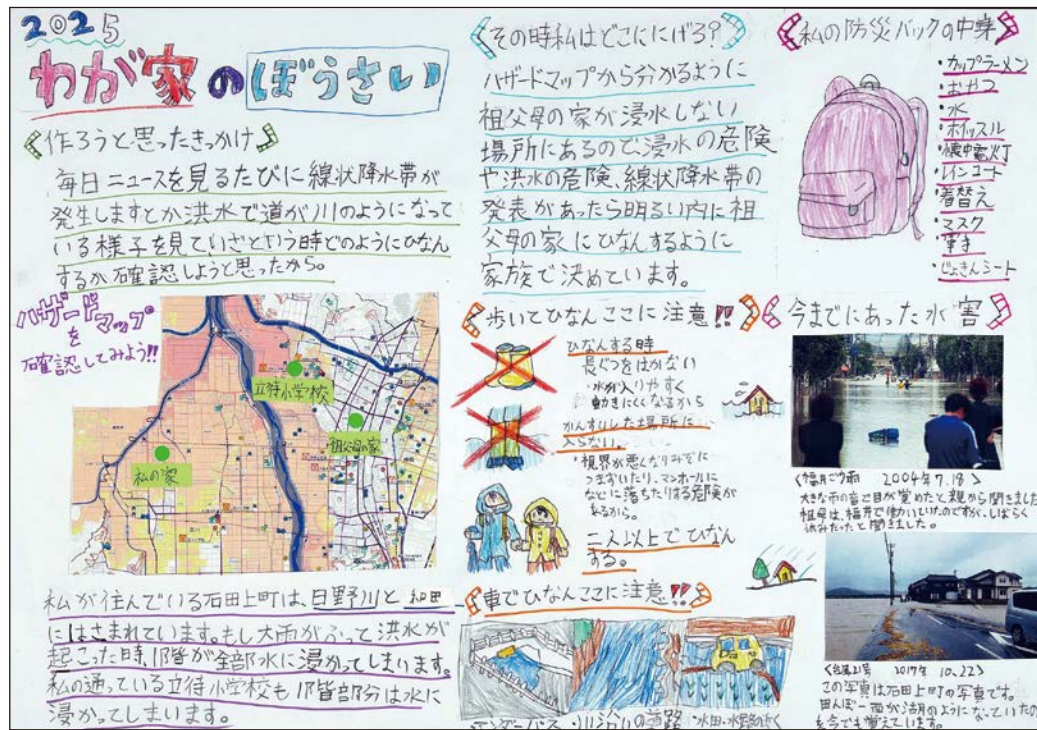 2025
わが家のぼうさい
作ろうと思ったきっかけ
毎日ニュースを見るたびに線状降水帯が
発生しますとか洪水で道が川のようになって
いる様子を見て、いざという時どのようにひなん
するか確認しようと思ったから。
ハザードマップ
を
確認してみよう!!
立待小学校
祖父母の家
私の家
私が住んでいる石田上町は、日野川と和田
にはさまれています。もし大雨がふって洪水が
起こった時、1階が全部水に浸かってしまいます。
私の通っている立待小学校も1階部分は水に
浸かってしまいます。
その時私はどこににげる?
ハザードマップから分かるように
祖父母の家が浸水しない
場所にあるので、浸水の危険
や洪水の危険、線状降水帯の
発表があったら明るい内に祖
父母の家にひなんするように
家族で決めています。
歩いてひなんここに注意!!
ひなんする時
長ぐつをはかない
・水が入りやすく
動きにくくなるから
かんすいした場所に
入らない。
・視界が悪くなりみぞに
つまずいたり、マンホールに
などに落ちたりする危険が
あるから。
二人以上でひなん
する。
車でひなんここに注意!!
アンダーパス・川ぞいの道路・水田・水路の近く
私の防災バックの中身
・カップラーメン
・おやつ
・水
・ホイッスル
・懐中電灯
・レインコート
・着替え
・マスク
・軍手
・じょきんシート
今までにあった水害
福井ごう雨 2004年7.18
大きな雨の音で目が覚めたと親から聞きました
祖母は、福井で働いていたのですが、しばらく
休みだったと聞きました。
台風21号 2017年 10.22
この写真は石田上町の写真です。
田んぼ一面が湖のようになっていたの
を今でも覚えています。